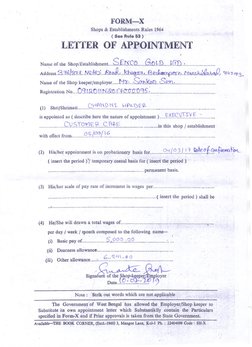 FORM—X
Shops & Establishments Rules 1964
( See Rule 53 )
LETTER OF APPOINTMENT
Name of the Shop/Establishment SENCO GOLD LTD.
Address Road, Khagra, Berhampore, Murshidabad,
Name of the Shop-keeper/employer Mr. Sankar Sen.
Registration No.
(1) Shri/Shrimati CHANDNI HALDER
is appointed as ( describe here the nature of appointment ) EXECUTIVE -
CUSTOMER CARE in this shop / establishment
with effect from
(2) His/her appointment is on probationary basis for
( insert the period )/ temporary casual basis for ( insert the period )
permanent basis.
(3) His/her scale of pay rate of increment in wages per
( insert the period ) shall be
(4) He/She will drawn a total wage of
per day / week / month composed to the following name—
(i) Basic pay of 5,000.00
(ii) Dearness allowance
(iii) Other allowance
Signature of the Shop-keeper/Employer
Date
Note : Strik out words which are not applicable
The Government of West Bengal has allowed the Employer/Shop-keeper to
Substitute its own appointment letter which Substantially contain the Particulars
specified in Form-X and if Prior approvals is taken from the State Government.
Available—THE BOOK CORNER, (Estd.-1965) 3, Mangoe Lane, Kol-1 Ph. : 22484499 Code : SD-X